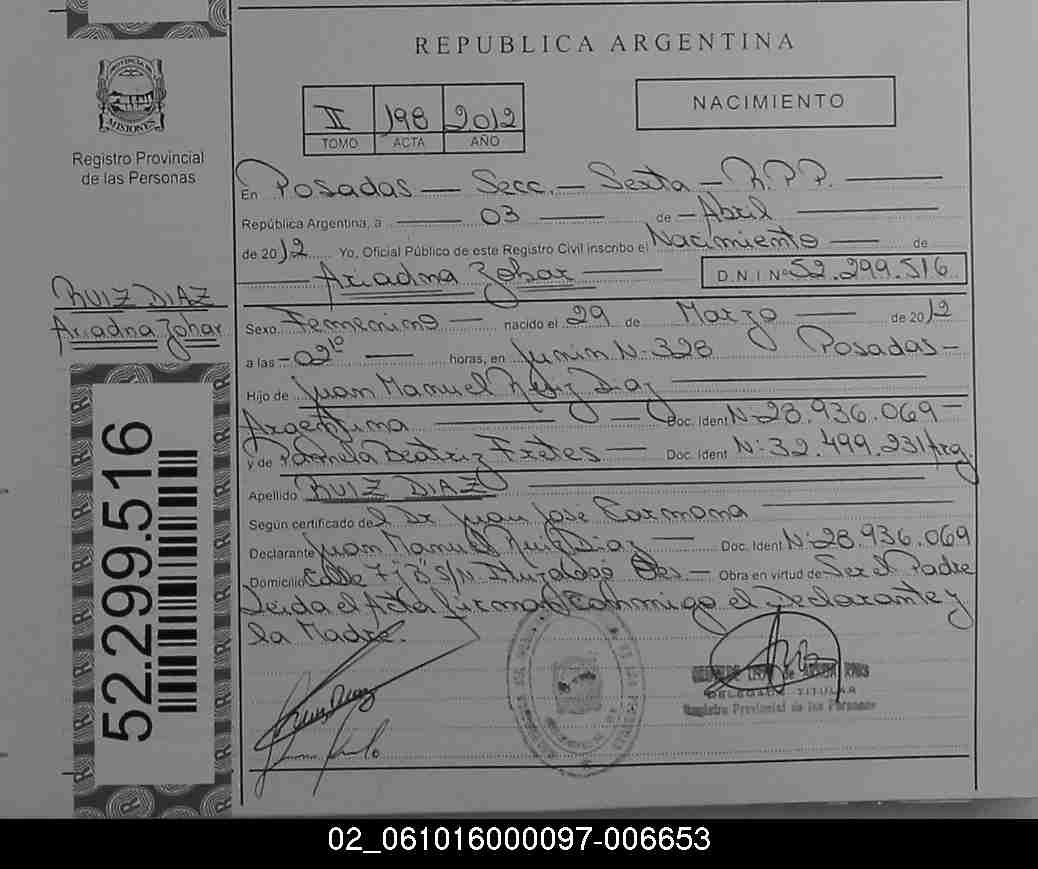 REPUBLICA ARGENTINA
PROVINCIA DE MISIONES
Registro Provincial
de las Personas
II 198 2012
TOMO ACTA AÑO
NACIMIENTO
En Posadas — Secc. — Sexta — R.P.P.
República Argentina, a — 03 — de — Abril
de 2012 Yo, Oficial Público de este Registro Civil inscribo el Nacimiento — de
— Ariadna Zohar — D.N.I Nº 52.299.516
RUIZ DIAZ
Ariadna Zohar
Sexo Femenino — nacido el 29 de Marzo — de 2012
a las — 02¹⁰ — horas, en Junin N- 328 Posadas —
Hijo de Juan Manuel Ruiz Diaz
Argentina — Doc. Ident N- 28.936.069 —
y de Pamela Beatriz Fretes — Doc. Ident N- 32.499.231 Arg.
Apellido RUIZ DIAZ
Según certificado del Dr Juan José Carmona
Declarante Juan Manuel Ruiz Diaz — Doc. Ident N- 28.936.069
Domicilio Calle 7 j "B" S/N — Obra en virtud de Ser el Padre
Leida el Acta firman conmigo el Declarante y
la Madre.
52.299.516
DELEGADA TITULAR
Registro Provincial de las Personas
02_061016000097-006653